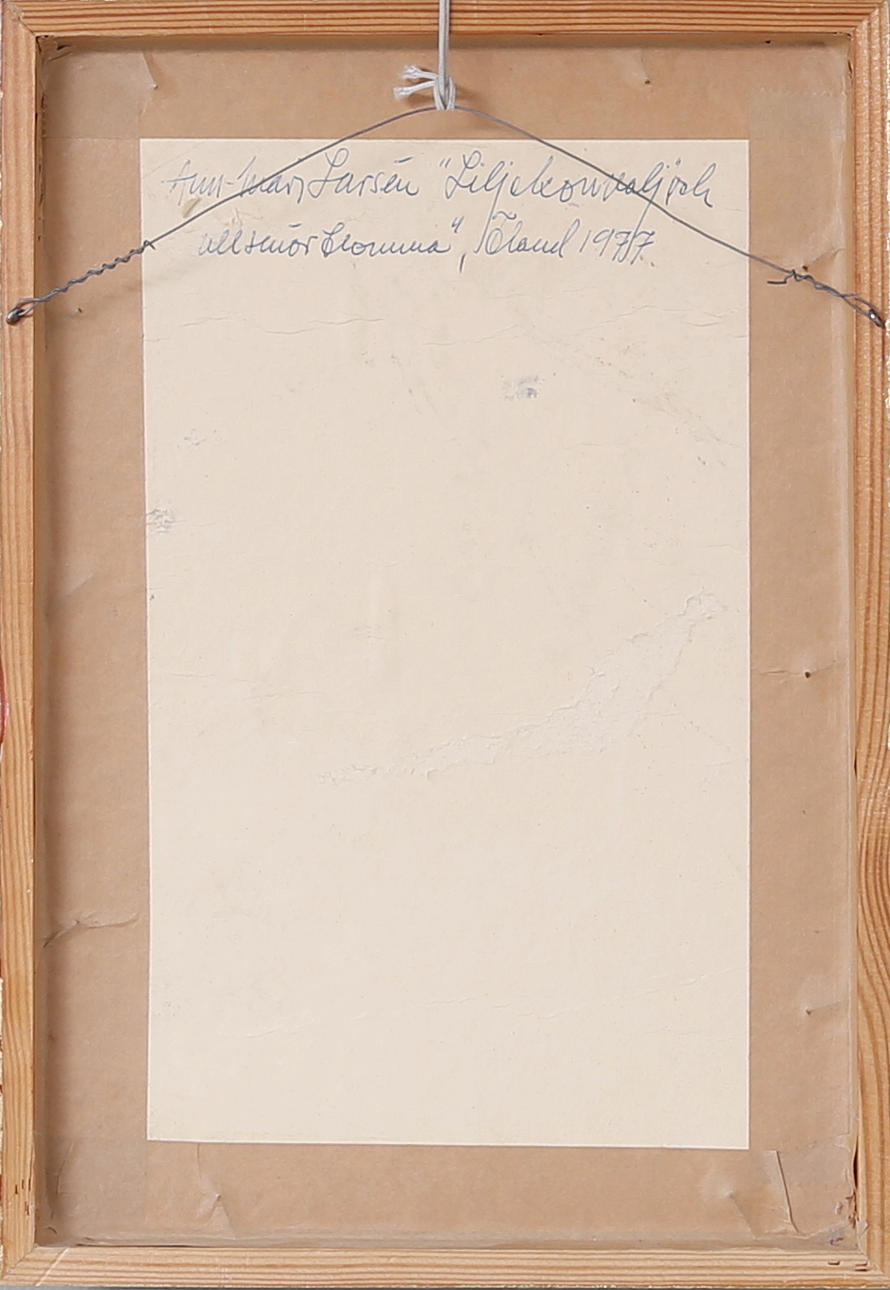 Ann-Mari Larsén "Liljekonvalj och
ullsmörblomma", Öland 1977.